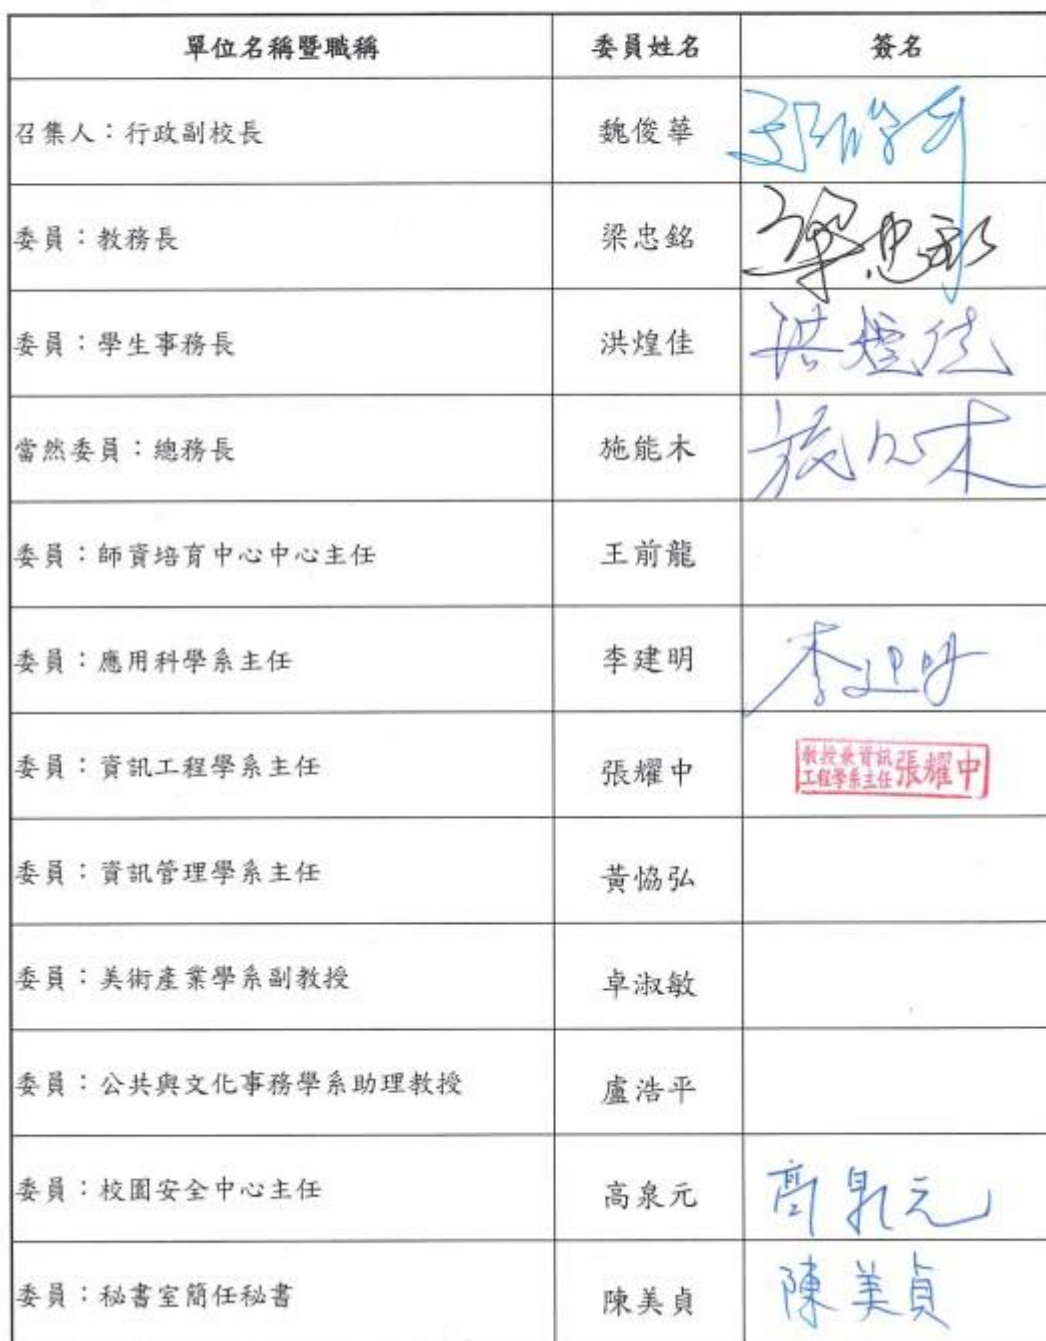 單位名稱暨職稱 委員姓名 簽名
召集人：行政副校長 魏俊華
委員：教務長 梁忠銘 梁忠銘
委員：學生事務長 洪煌佳 洪煌佳
當然委員：總務長 施能木 施能木
委員：師資培育中心中心主任 王前龍
委員：應用科學系主任 李建明 李建明
委員：資訊工程學系主任 張耀中 教授兼資訊工程學系主任 張耀中
委員：資訊管理學系主任 黃協弘
委員：美術產業學系副教授 卓淑敏
委員：公共與文化事務學系助理教授 盧浩平
委員：校園安全中心主任 高泉元 高泉元
委員：秘書室簡任秘書 陳美貞 陳美貞